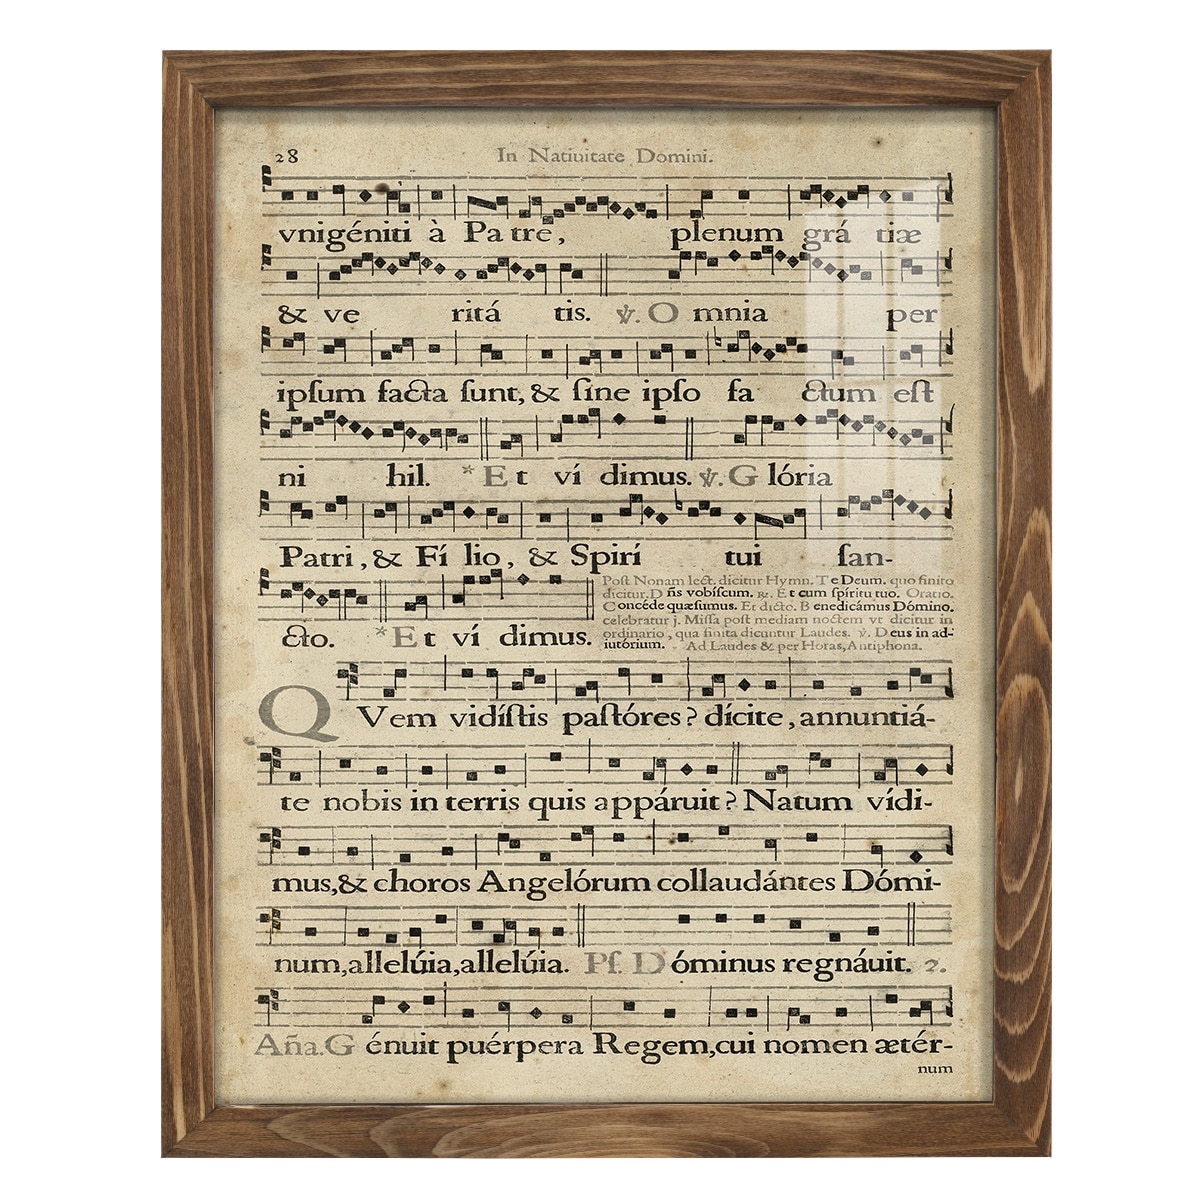 28 In Natiuitate Domini.
vnigéniti à Pa tre, plenum grá tiæ
& ve ritá tis. ℣. O mnia per
ipſum facta ſunt, & ſine ipſo fa ctum eſt
ni hil. * Et ví dimus. ℣. G lória
Patri, & Fí lio, & Spirí tui ſan-
cto. * Et ví dimus.
Poſt Nonam lect. dicitur Hymn. Te Deum. quo finito
dicitur. D ñs vobíſcum. ℟. Et cum ſpíritu tuo. Oratio.
C oncéde quæſumus. Et dicto. B enedicámus Dómino.
celebratur j. Miſſa poſt mediam noctem vt dicitur in
ordinario, qua finita dicuntur Laudes. ℣. D eus in ad-
iutórium. Ad Laudes & per Horas, Antiphona.
Q Vem vidíſtis paſtóres? dícite, annuntiá-
te nobis in terris quis appáruit? Natum vídi-
mus, & choros Angelórum collaudántes Dómi-
num, allelúia, allelúia. Pſ. D óminus regnáuit. 2.
Aña. G énuit puérpera Regem, cui nomen ætér-
num